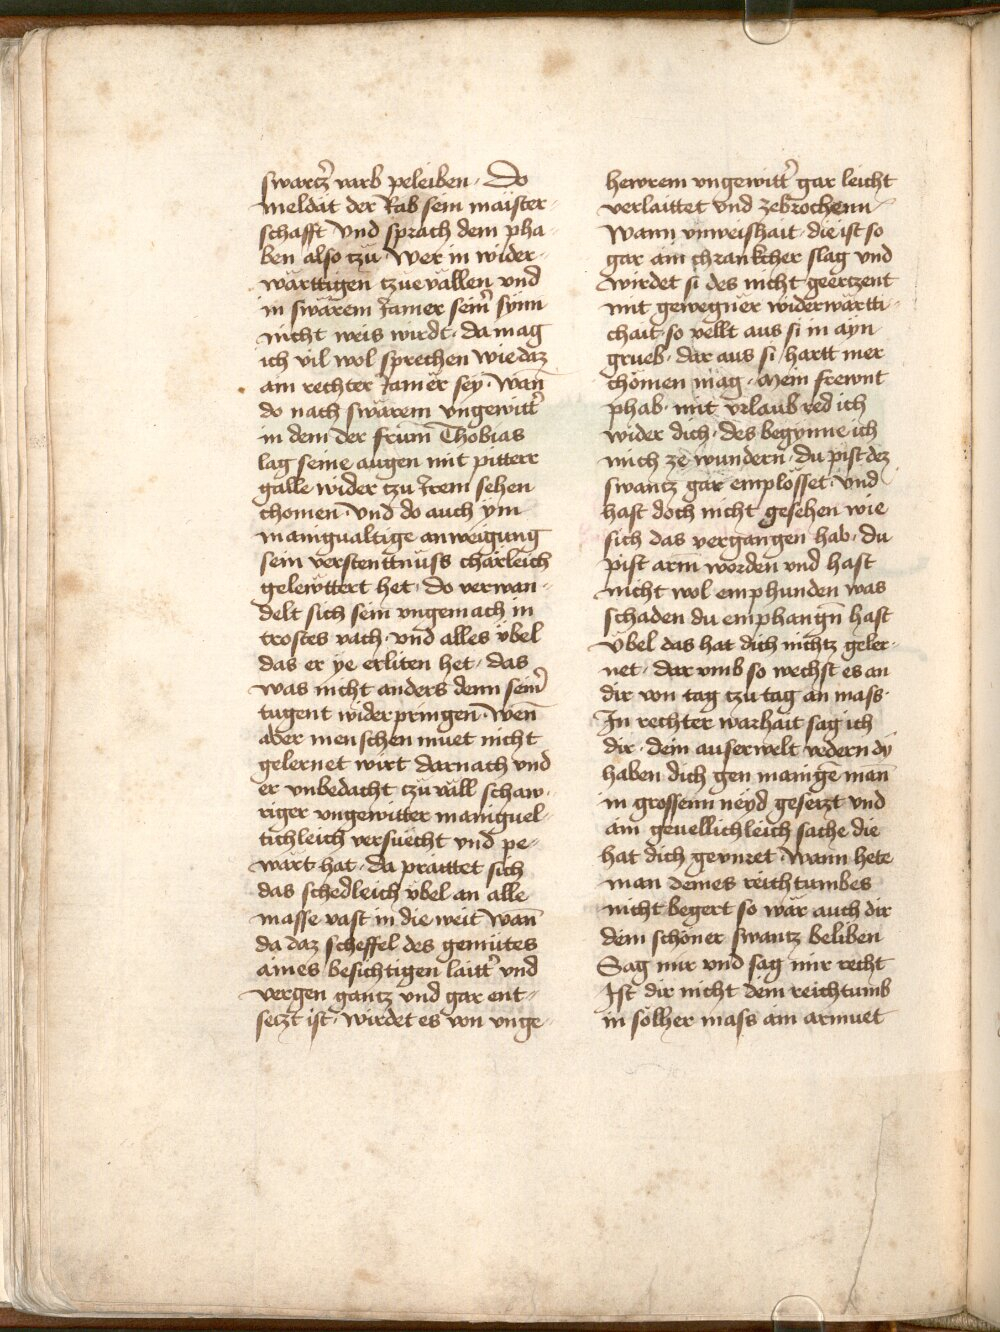 swartz᷑ varb peleiben · Do
meldat der Rab sein maister-
schafft Und sprach dem pha-
ben also tzů · Wer in wider-
wärttigen tzuevällen und
in swärem Jamer sein᷑ synn
nicht weis wirdt · da mag
ich vil wol sprechen wie daz
ain rechter Jamer sey · Wan̄
do nach swärem ungewitt᷑
in dem der frum̄ Thobias
lag seine augen mit pitterr
galle wider tzu Irem sehen
chomen · Und do auch ym
manigualtige anweigung
sein verstenttnüss chärleich
gelewttert het · do verwan-
delt sich sein ungemach in
trostes vach · und alles übel
das er ye erliten het · das
was nicht anders denn sein᷑
tugent widerpringen · Wen̄
aber menschen muet nicht
gelernet wirt darnach und
er unbedacht tzu väll schaw-
riger ungewitter maniguel-
tichleich versuecht und pe-
wärt hat · da práittet sich
das schedleich übel an alle
masse vast in die weit Wan̄
da daz scheffel des gemütes
aines besichtigen láitt᷑ und
vergen gantz und gar ent-
setzt ist · wirdet es von unge-
hewrem ungewitt᷑ gar leicht
verlaittet und zebrochenn
Wann unweishait · die ist so
gar ain chrankcher slag und
wirdet si des nicht geertzent
mit gewegner widerwärtti-
chait · so vellt aus si in ayn
grueb · dar aus si hartt mer
chömen mag · Mein frewnt
phab · mit urlaub red ich
wider dich · des begynne ich
mich ze wundern · du pist dez
swantz gar emplösset und
hast doch nicht gesehen wie
sich das vergangen hab · du
pist arm worden und hast
nicht wol emphunden was
schaden du emphangn̄ hast
Übel das hat dich nichtz geler-
net · dar umb so wechst es an
dir von tag tzu tag an mass ·
In rechter warhait sag ich
dir · dein auserwelt vedern dy
haben dich gen manige̅ man̄
in grossenn neyd gesetzt und
ain geuellichleich sache die
hat dich geunret · Wann hete
man deines reichtumbes
nicht begert so wär auch dir
dein schöner swantz beliben
Sag mir und sag mir recht
Ist dir nicht dein reichtumb
in sölher mass ain armuet